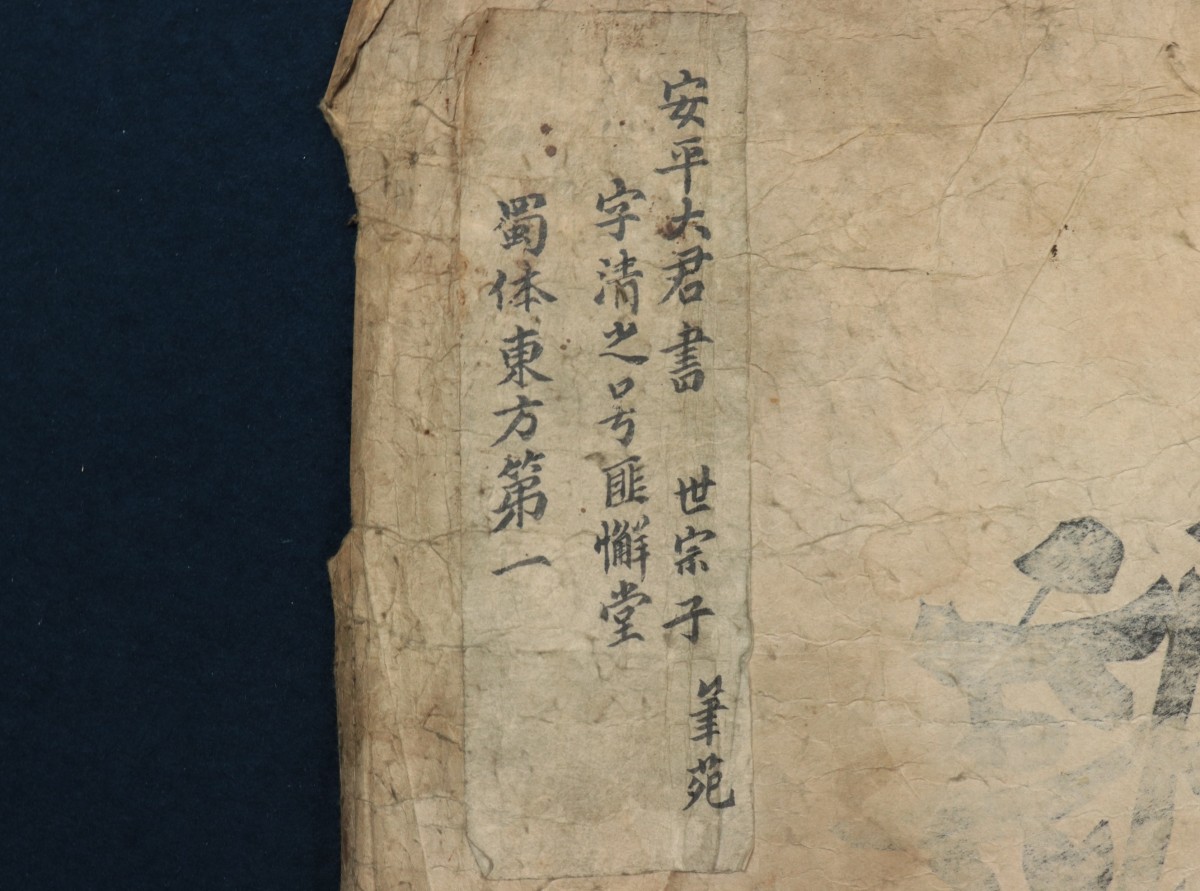 安平大君書 世宗子 筆苑
字清之号匪懈堂
蜀体東方第一